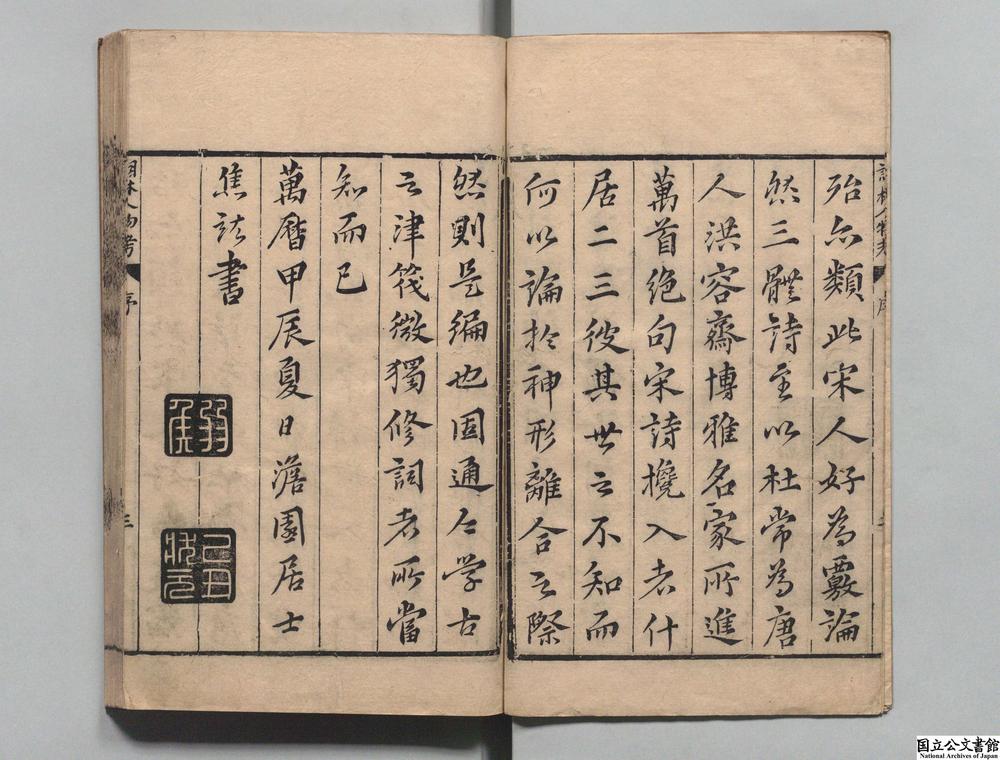 詞林人物考 序
殆亦類此宋人好為覈論
然三體詩至以杜常為唐
人洪容齋博雅名家所進
萬首絕句宋詩攙入者什
居二三彼其世之不知而
何以論於神形離合之際
然則是編也固通今學古
之津筏微獨修詞者所當
知而已
萬曆甲辰夏日澹園居士
焦竑書
弱侯
己丑狀元
詞林人物考 序 三
国立公文書館
National Archives of Japan